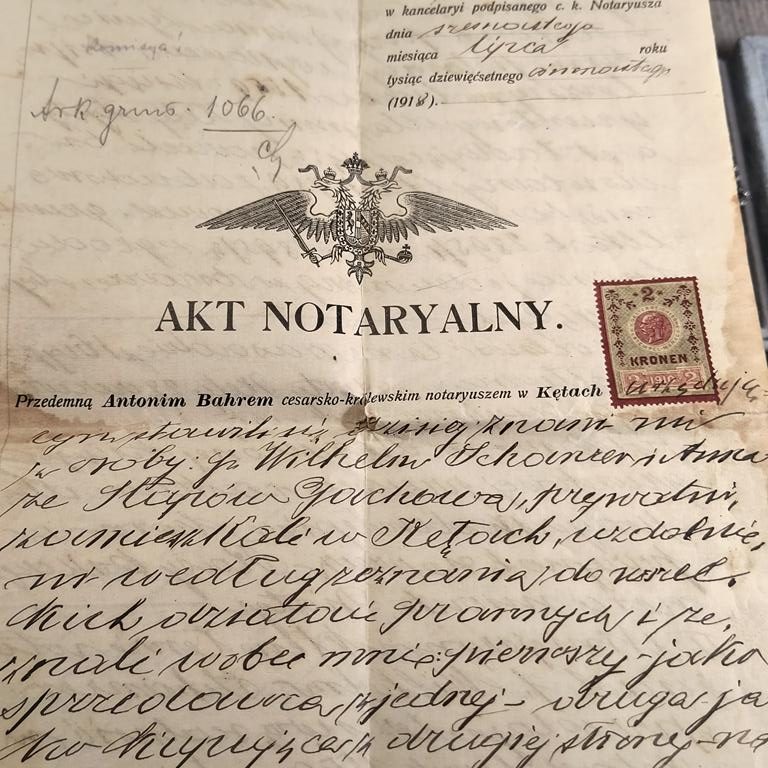 w kancelaryi podpisanego c. k. Notaryusza
dnia szesnastego
miesiąca lipca roku
tysiąc dziewięćsetnego ośmnastego
(1918).
Ark. grun. 1066.
AKT NOTARYALNY.
2
KRONEN
2 1910 2
Przedemną Antonim Bahrem cesarsko-królewskim notaryuszem w Kętach urzędują-
cym stawili się dzisiaj znani mi
z osoby: p. Wilhelm Schanzer i Anna
ze Słapów Jachowa, prywatni,
zamieszkali w Kętach, uzdolnie,
ni według zeznania do wszel,
kich działań prawnych i ze,
znali wobec mnie: pierwszy jako
sprzedawca z jednej - druga ja
ko kupująca z drugiej strony - na